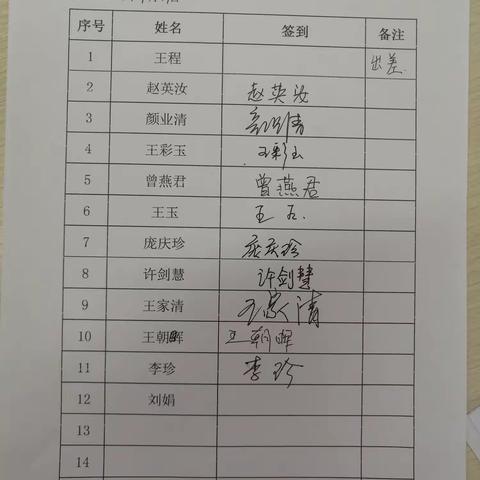 序号 姓名 签到 备注
1 王程 出差
2 赵英汝 赵英汝
3 颜业清 颜业清
4 王彩玉 王彩玉
5 曾燕君 曾燕君
6 王玉 王玉
7 庞庆珍 庞庆珍
8 许剑慧 许剑慧
9 王家清 王家清
10 王朝晖 王朝晖
11 李珍 李珍
12 刘娟
13
14